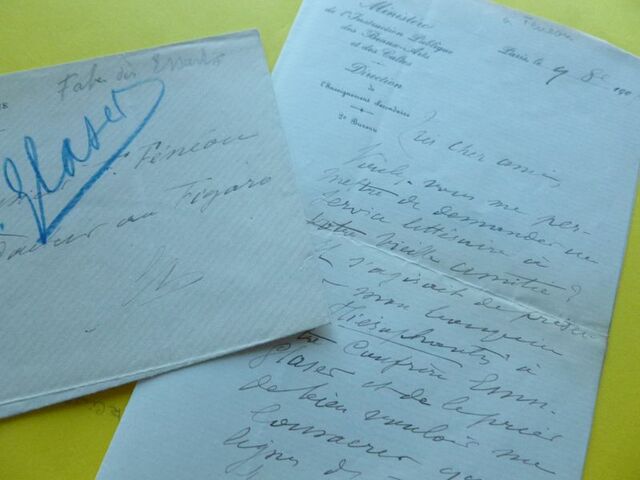 Fabre des Essarts
Glaser
Fénéon
au Figaro
à Fénéon
Ministère
de l'Instruction Publique
des Beaux-Arts
et des Cultes
Direction
de
l'Enseignement Secondaire
2e Bureau
Paris, le 19 8bre 190
Mon cher ami,
Voulez-vous me per-
mettre de demander un
service littéraire à
votre vieille amitié ?
Il s'agirait de présen
mon bouquin
Hiérophantes à
confrère Emm.
Glaser et de le prier
de bien vouloir me
consacrer
lignes de